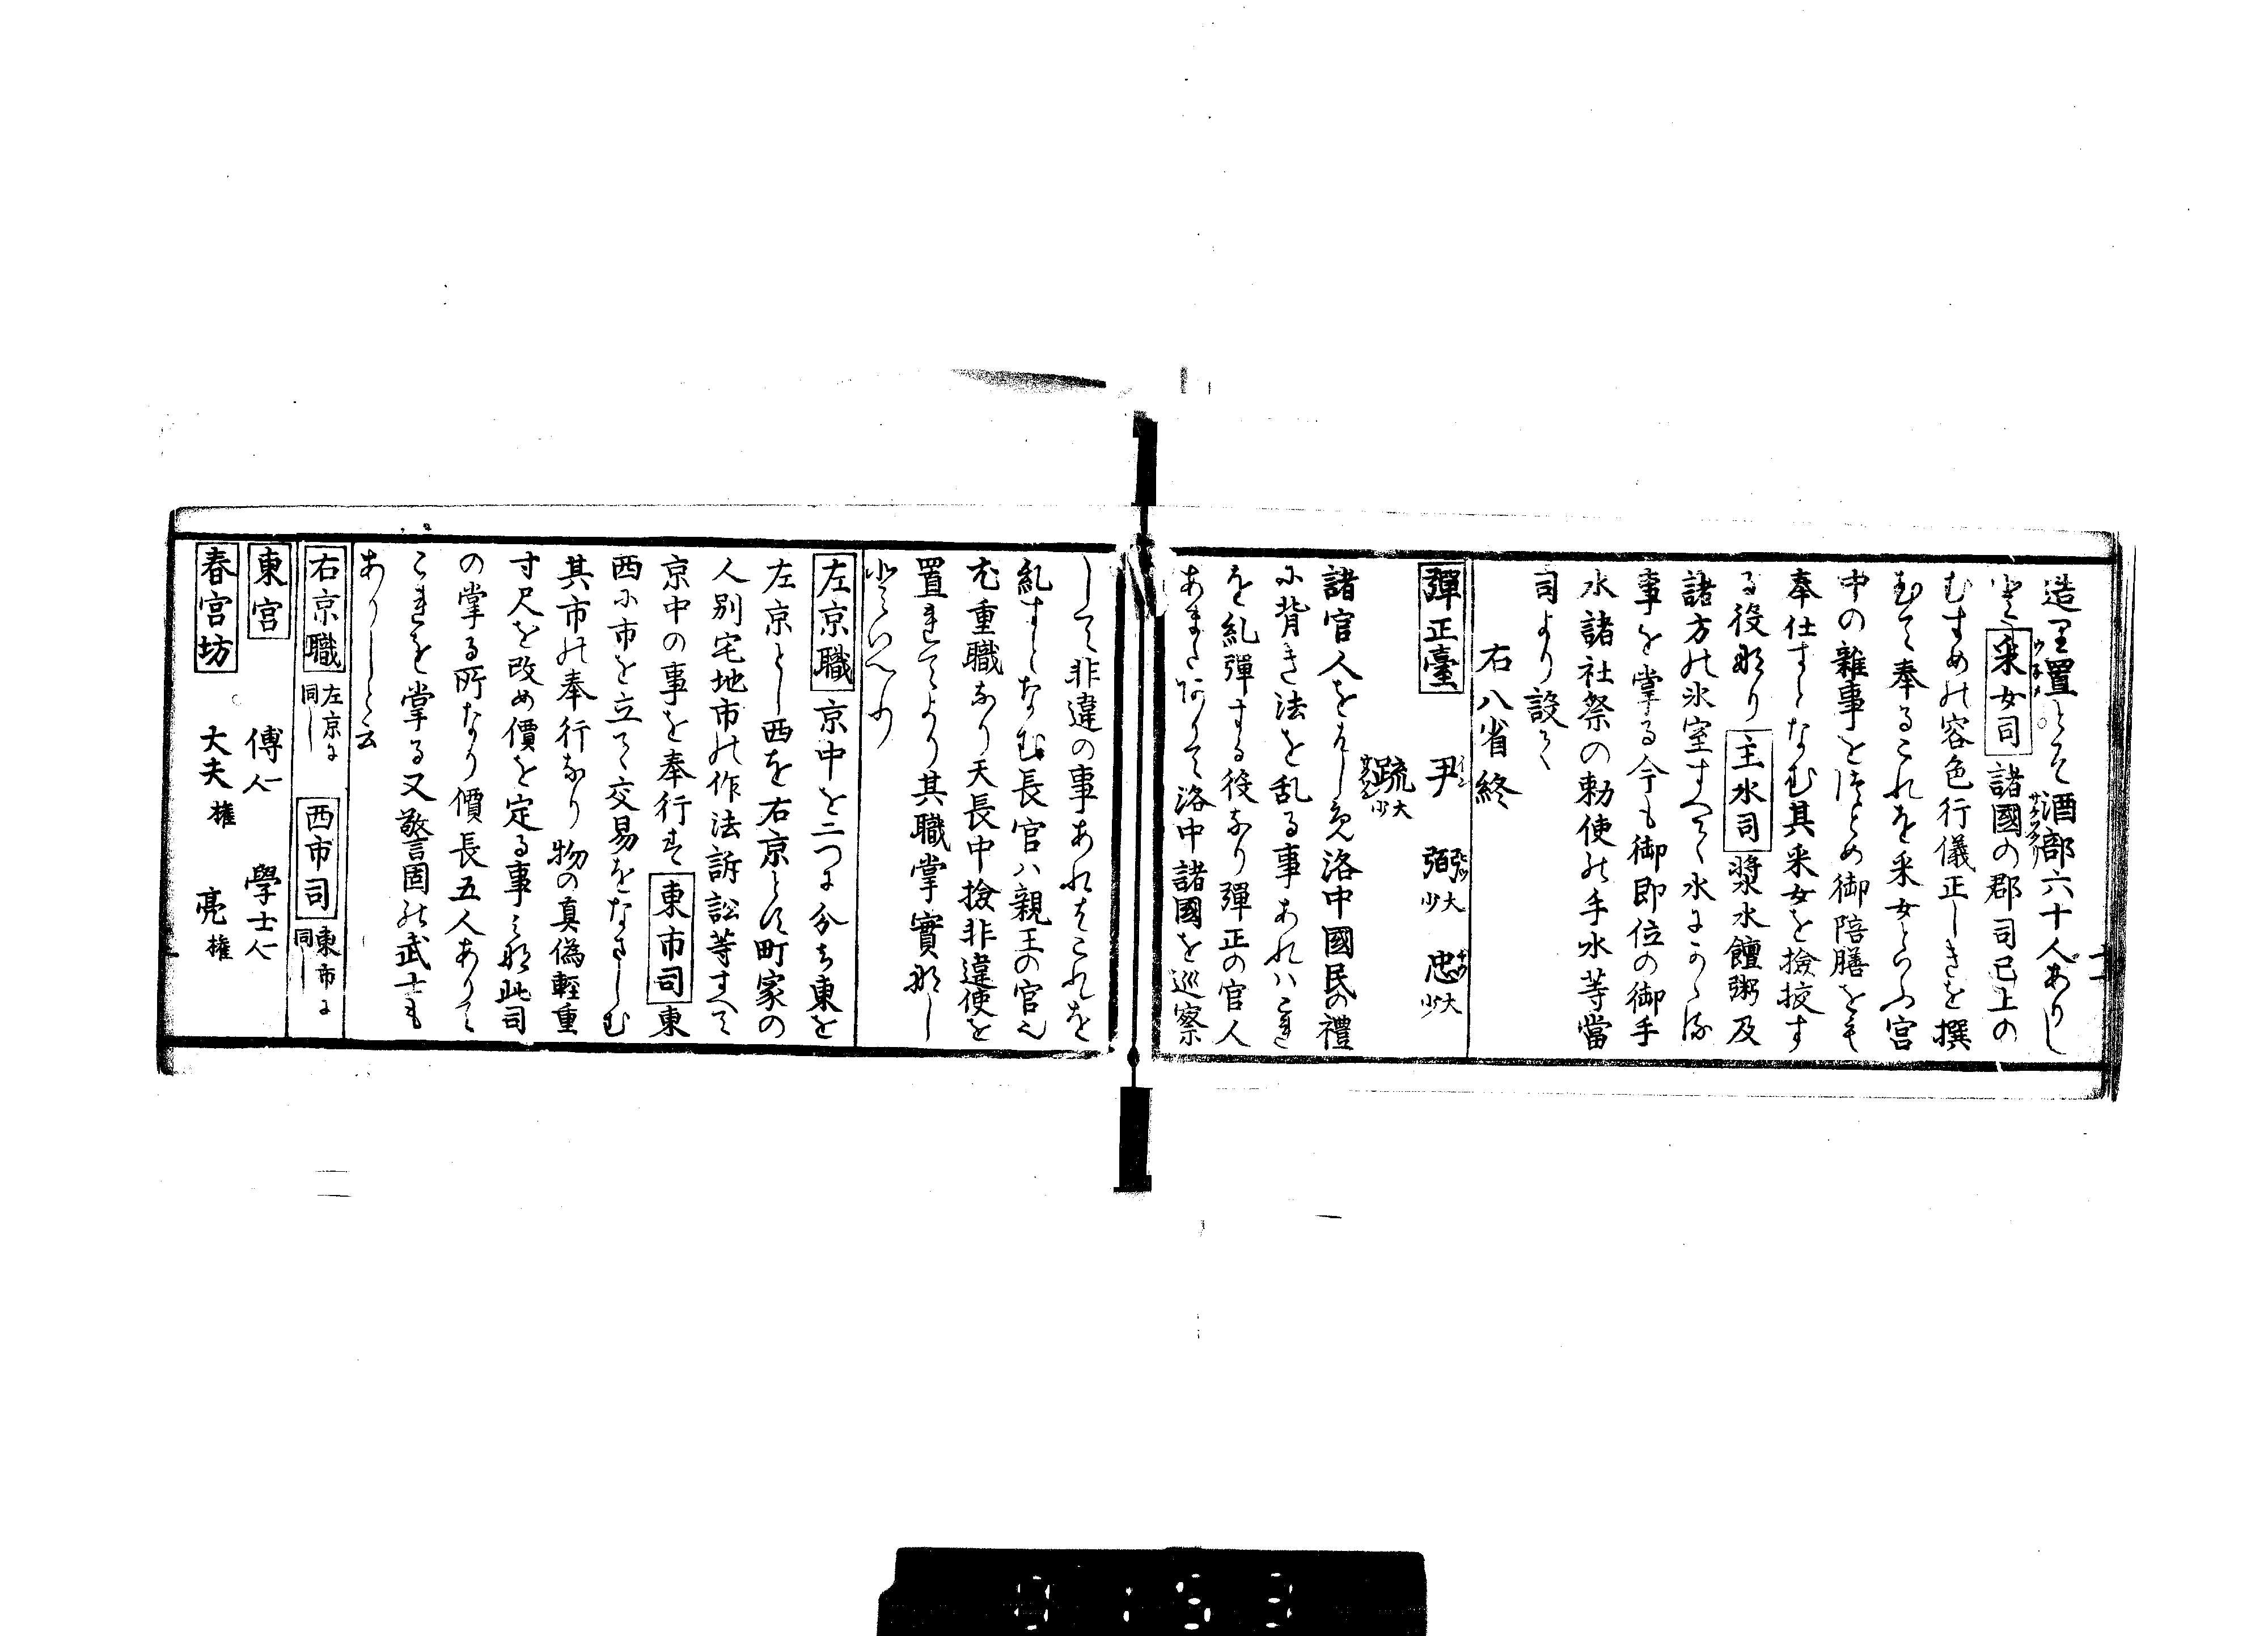 造里置とそ酒部六十人ありし
とそ采女司諸國の郡司已上の
むすめの容色行儀正しきを撰
むて奉るこれを采女といふ宮
中の雜事をつとめ御陪膳をも
奉仕すとなむ其采女を撿挍す
る役なり主水司漿水饘粥及
諸方の氷室すへて水にかゝる
事を掌る今も御即位の御手
水諸社祭の勅使の手水等當
司より設く
右八省終
彈正臺 尹 弼大少 忠大少
疏大少
諸官人をたゝし洛中國民の禮
に背き法を乱る事あれハこれ
を糺彈する役なり彈正の官人
あまたありて洛中諸國を巡察
して非違の事あれはこれを
糺すとなむ長官ハ親王の官也
尤重職なり天長中撿非違使を
置れてより其職掌實なし
とそいへり
左京職京中を二つに分ち東を
左京とし西を右京とす町家の
人別宅地市の作法訴訟等すへて
京中の事を奉行す東市司東
西に市を立て交易をなさしむ
其市の奉行なり物の真偽輕重
寸尺を改め價を定る事みな此司
の掌る所なり價長五人ありて
これを掌る又警固の武士も
ありしと云
右京職左京に同し 西市司東市に同し
東宮 傅一人 學士一人
春宮坊 大夫權 亮權